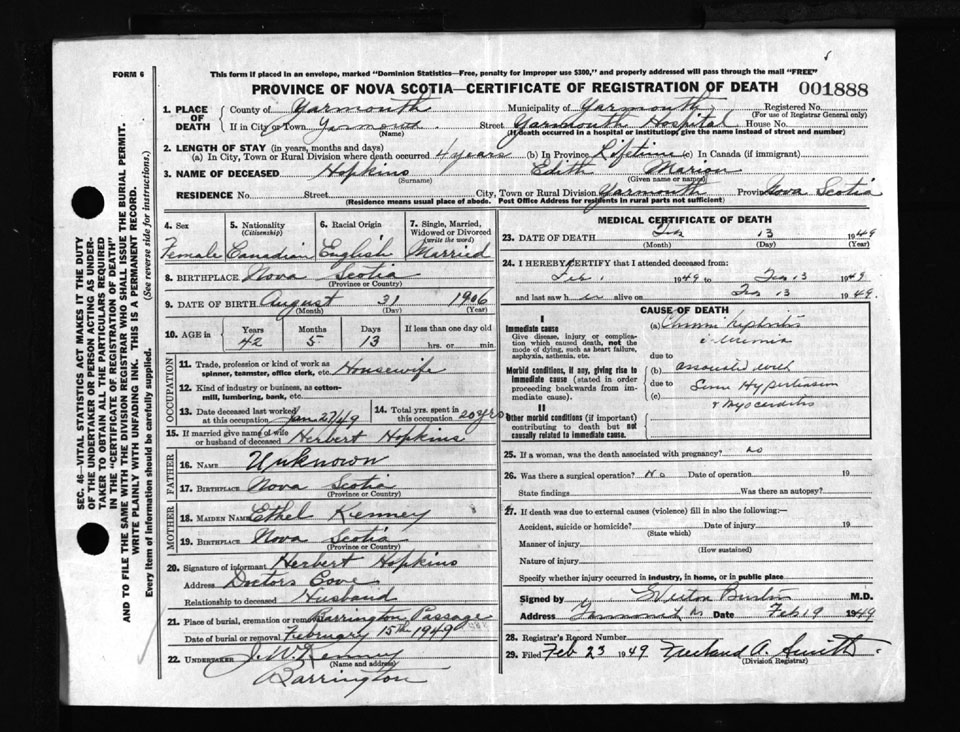 FORM 6
This form if placed in an envelope, marked "Dominion Statistics—Free, penalty for improper use $300," and properly addressed will pass through the mail "FREE"
PROVINCE OF NOVA SCOTIA—CERTIFICATE OF REGISTRATION OF DEATH 001888
1. PLACE OF DEATH
County of Yarmouth Municipality of Yarmouth Registered No.
(For use of Registrar General only)
If in City or Town Yarmouth. Street Yarmouth Hospital House No.
(Name) (If death occurred in a hospital or institution, give the name instead of street and number)
2. LENGTH OF STAY (in years, months and days)
(a) In City, Town or Rural Division where death occurred 4 years (b) In Province Lifetime (c) In Canada (if immigrant)
3. NAME OF DECEASED Hopkins Edith Marion
(Surname) (Given name or names)
RESIDENCE No. Street City, Town or Rural Division Yarmouth Province Nova Scotia
(Residence means usual place of abode. Post Office Address for residents in rural parts not sufficient)
4. Sex Female
5. Nationality (Citizenship) Canadian
6. Racial Origin English
7. Single, Married, Widowed or Divorced (write the word) Married
8. BIRTHPLACE Nova Scotia
(Province or Country)
9. DATE OF BIRTH August 31 1906
(Month) (Day) (Year)
10. AGE in Years Months Days If less than one day old
42 5 13 hrs. or min.
OCCUPATION
11. Trade, profession or kind of work as spinner, teamster, office clerk, etc. Housewife
12. Kind of industry or business, as cotton-mill, lumbering, bank, etc.
13. Date deceased last worked at this occupation Jan 27/49
14. Total yrs. spent in this occupation 20 yrs
15. If married give name of wife or husband of deceased Herbert Hopkins
FATHER
16. NAME Unknown
17. BIRTHPLACE Nova Scotia
(Province or Country)
MOTHER
18. MAIDEN NAME Ethel Kenney
19. BIRTHPLACE Nova Scotia
(Province or Country)
20. Signature of informant Herbert Hopkins
Address Doctors Cove
Relationship to deceased Husband
21. Place of burial, cremation or removal Barrington Passage
Date of burial or removal February 15th 1949
22. UNDERTAKER J. W. Kenney
(Name and address)
Barrington
MEDICAL CERTIFICATE OF DEATH
23. DATE OF DEATH Feb 13 1949
(Month) (Day) (Year)
24. I HEREBY CERTIFY that I attended deceased from:
Feb 1 1949 to Feb 13 1949
and last saw her alive on Feb 13 1949.
CAUSE OF DEATH
I
Immediate cause
Give disease, injury or complication which caused death, not the mode of dying, such as heart failure, asphyxia, asthenia, etc.
(a) Chronic Nephritis
c Uremia
due to
Morbid conditions, if any, giving rise to immediate cause (stated in order proceeding backwards from immediate cause).
(b) associated with
due to Some Hypertension
(c) & Myocarditis
II
Other morbid conditions (if important) contributing to death but not causally related to immediate cause.
25. If a woman, was the death associated with pregnancy? no
26. Was there a surgical operation? No Date of operation 19
State findings Was there an autopsy?
27. If death was due to external causes (violence) fill in also the following:—
Accident, suicide or homicide? Date of injury 19
(State which)
Manner of injury
(How sustained)
Nature of injury
Specify whether injury occurred in industry, in home, or in public place
Signed by M.D.
Address Yarmouth NS Date Feb 19 1949
28. Registrar's Record Number
29. Filed Feb 23 1949 Freeland A. Smith
(Division Registrar)
SEC. 46—VITAL STATISTICS ACT MAKES IT THE DUTY
OF THE UNDERTAKER OR PERSON ACTING AS UNDER-
TAKER TO OBTAIN ALL THE PARTICULARS REQUIRED
IN THE "CERTIFICATE OF REGISTRATION OF DEATH"
AND TO FILE THE SAME WITH THE DIVISION REGISTRAR WHO SHALL ISSUE THE BURIAL PERMIT.
WRITE PLAINLY WITH UNFADING INK. THIS IS A PERMANENT RECORD.
Every item of information should be carefully supplied. (See reverse side for instructions.)